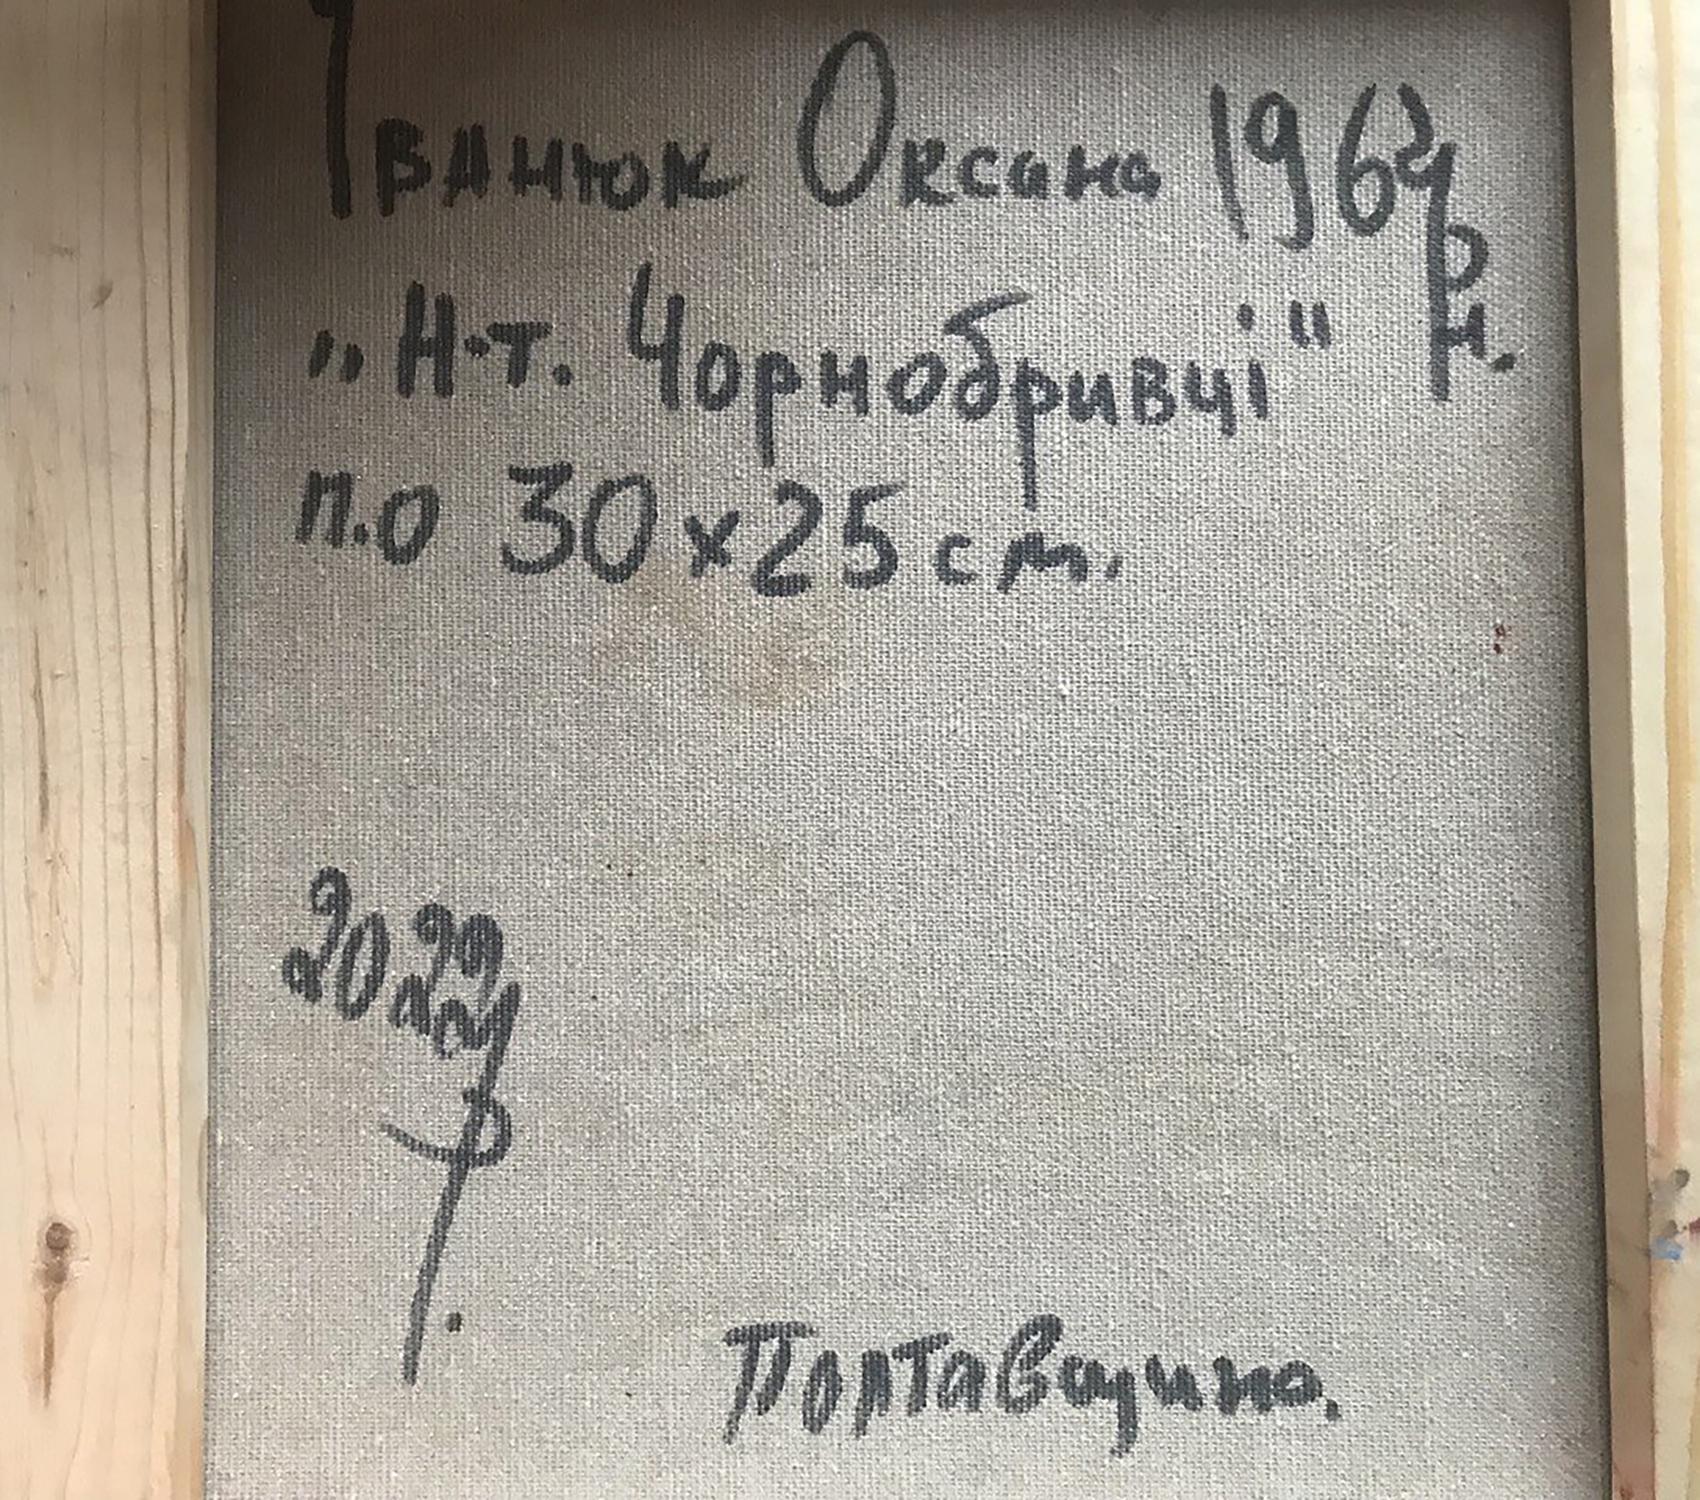 Іванюк Оксана 1962 р.н.
„Н-т. Чорнобривці"
п.о 30х25см.
2022 р.
Полтавщина.